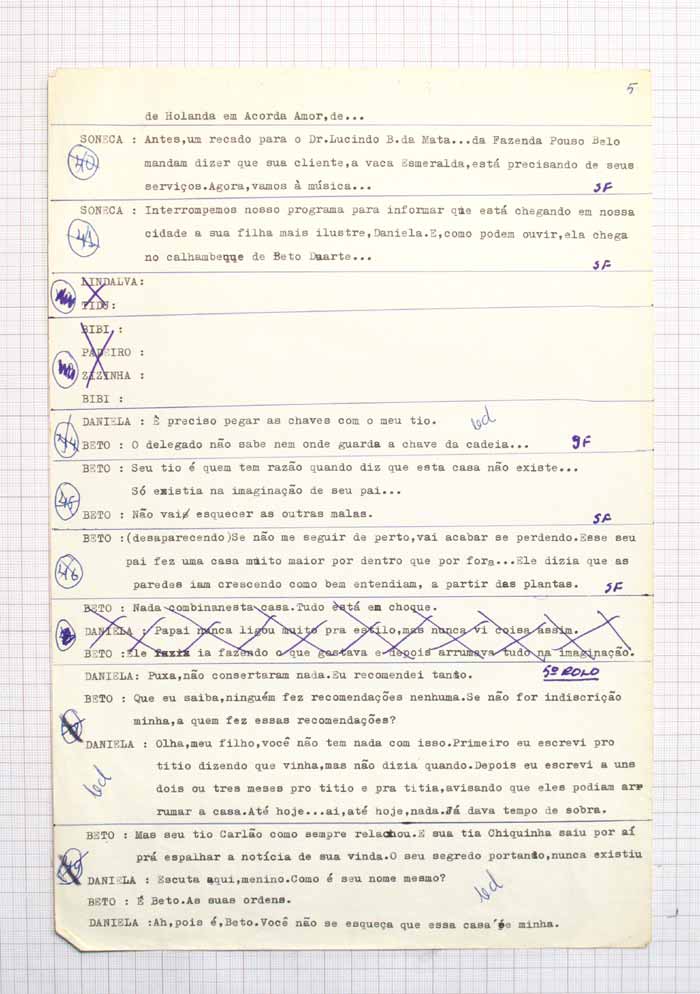 5
de Holanda em Acorda Amor,de...
SONECA : Antes,um recado para o Dr.Lucindo B.da Mata...da Fazenda Pouso Belo
40
mandam dizer que sua cliente,a vaca Esmeralda,está precisando de seus
serviços.Agora,vamos à música...
SF
SONECA : Interrompemos nosso programa para informar que está chegando em nossa
41
cidade a sua filha mais ilustre,Daniela.E,como podem ouvir,ela chega
no calhambeque de Beto Duarte...
SF
LINDALVA:
TIDU:
BIBI :
PADEIRO :
ZIZINHA :
BIBI :
DANIELA : È preciso pegar as chaves com o meu tio.
44
BETO : O delegado não sabe nem onde guarda a chave da cadeia...
SF
BETO : Seu tio é quem tem razão quando diz que esta casa não existe...
45
Só existia na imaginação de seu pai...
BETO : Não vai esquecer as outras malas.
SF
BETO :(desaparecendo)Se não me seguir de perto,vai acabar se perdendo.Esse seu
46
pai fez uma casa muito maior por dentro que por fora...Ele dizia que as
paredes iam crescendo como bem entendiam, a partir das plantas.
SF
BETO : Nada combinanesta casa.Tudo está em choque.
DANIELA : Papai nunca ligou muito pra estilo,mas nunca vi coisa assim.
BETO :Ele ia fazendo o que gostava e depois arrumava tudo na imaginação.
DANIELA: Puxa,não consertaram nada.Eu recomendei tanto.
5º ROLO
BETO : Que eu saiba,ninguém fez recomendações nenhuma.Se não for indiscrição
minha,a quem fez essas recomendações?
DANIELA : Olha,meu filho,você não tem nada com isso.Primeiro eu escrevi pro
titio dizendo que vinha,mas não dizia quando.Depois eu escrevi a uns
dois ou tres meses pro titio e pra titia,avisando que eles podiam arr
rumar a casa.Até hoje...ai,até hoje,nada.Já dava tempo de sobra.
BETO : Mas seu tio Carlão como sempre relachou.E sua tia Chiquinha saiu por aí
prá espalhar a notícia de sua vinda.O seu segredo portanto,nunca existiu
DANIELA : Escuta aqui,menino.Como é seu nome mesmo?
BETO : È Beto.As suas ordens.
DANIELA :Ah,pois é,Beto.Você não se esqueça que essa casa é minha.